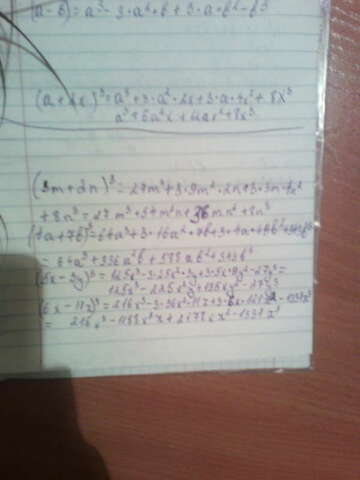 (a-b)=a³-3·a²·b+3·a·b²-b³
(a+2x)³=a³+3·a²·2x+3·a·4x²+8x³
a³+6a²x+12ax²+8x³
(3m+2n)³=27m³+3·9m²·2n+3·3m·4n²
+8n³=27m³+54m²n+36mn²+8n³
(4a+7b)³=64a³+3·16a²·7b+3·4a·49b²+343b³
=64a³+336a²b+588ab²+343b³
(5x-3y)³=125x³-3·25x²·3y+3·5x·9y²-27y³=
125x³-225x²y+135xy²-27y³
(6x-11z)³=216x³-3·36x²·11z+3·6x·121z²-1331z³
= 216x³-1188x²z+2178xz²-1331z³